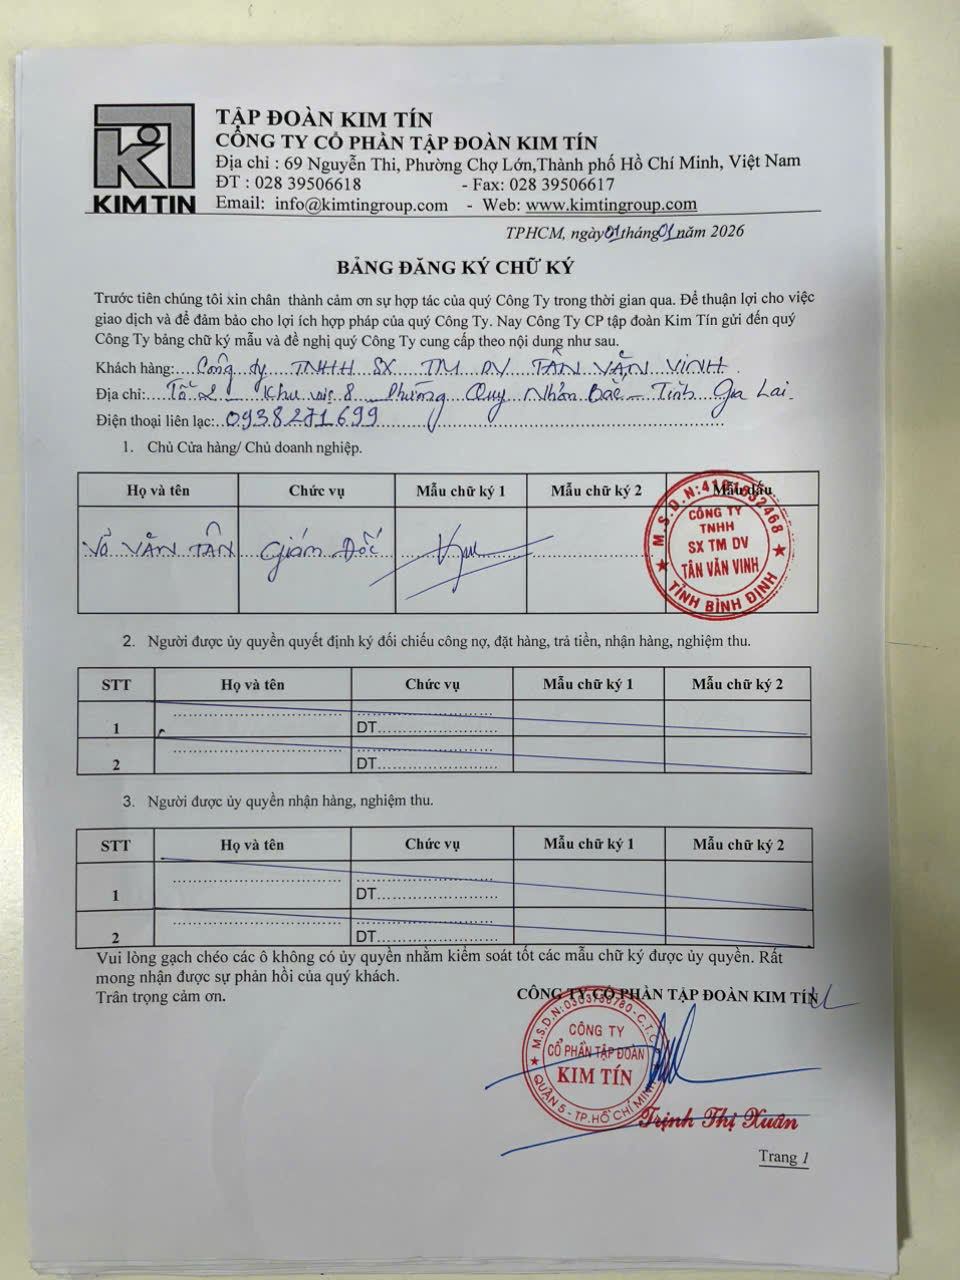 TẬP ĐOÀN KIM TÍN
CÔNG TY CỔ PHẦN TẬP ĐOÀN KIM TÍN
Địa chỉ : 69 Nguyễn Thi, Phường Chợ Lớn,Thành phố Hồ Chí Minh, Việt Nam
ĐT : 028 39506618 - Fax: 028 39506617
KIM TIN
Email: info@kimtingroup.com - Web: www.kimtingroup.com
TPHCM, ngày 01 tháng 01 năm 2026
BẢNG ĐĂNG KÝ CHỮ KÝ
Trước tiên chúng tôi xin chân thành cảm ơn sự hợp tác của quý Công Ty trong thời gian qua. Để thuận lợi cho việc
giao dịch và để đảm bảo cho lợi ích hợp pháp của quý Công Ty. Nay Công Ty CP tập đoàn Kim Tín gửi đến quý
Công Ty bảng chữ ký mẫu và đề nghị quý Công Ty cung cấp theo nội dung như sau.
Khách hàng: Công ty TNHH SX TM DV TÂN VĂN VINH
Địa chỉ: Tổ 2 - Khu vực 8 - Phường Quy Nhơn Bắc - Tỉnh Gia Lai.
Điện thoại liên lạc: 0938271699
1. Chủ Cửa hàng/ Chủ doanh nghiệp.
Họ và tên Chức vụ Mẫu chữ ký 1 Mẫu chữ ký 2 Mẫu dấu
Võ VĂN TÂN Giám Đốc
CÔNG TY
TNHH
SX TM DV
TÂN VĂN VINH
TỈNH BÌNH ĐỊNH
2. Người được ủy quyền quyết định ký đối chiếu công nợ, đặt hàng, trả tiền, nhận hàng, nghiệm thu.
STT Họ và tên Chức vụ Mẫu chữ ký 1 Mẫu chữ ký 2
1 DT
2 DT
3. Người được ủy quyền nhận hàng, nghiệm thu.
STT Họ và tên Chức vụ Mẫu chữ ký 1 Mẫu chữ ký 2
1 DT
2 DT
Vui lòng gạch chéo các ô không có ủy quyền nhằm kiểm soát tốt các mẫu chữ ký được ủy quyền. Rất
mong nhận được sự phản hồi của quý khách.
Trân trọng cảm ơn.
CÔNG TY CỔ PHẦN TẬP ĐOÀN KIM TÍN
CÔNG TY
CỔ PHẦN TẬP ĐOÀN
KIM TÍN
QUẬN 5 - TP.HỒ CHÍ MINH
Trịnh Thị Xuân
Trang 1